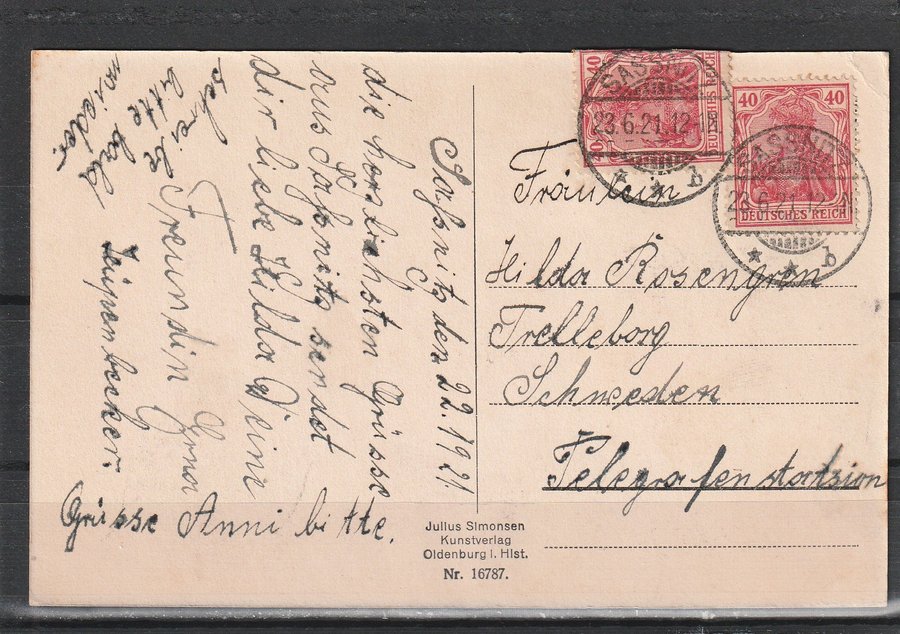 Saßnitz den 22. 1921
die herzlichsten Grüsse
aus Saßnitz sendet
dir liebe Hilda Deine
Freundin Erna
schreibe
bitte bald
wieder.
Grüsse Anni bitte.
Fräulein
Hilda Rosengren
Trelleborg
Schweden
Telegrafenstatsion
40
DEUTSCHES REICH
SASSNITZ
23.6.21.12-1N
* * b
40 40
DEUTSCHES REICH
SASSNITZ
23.6.21.12-1N
* * b
Julius Simonsen
Kunstverlag
Oldenburg i. Hlst.
Nr. 16787.